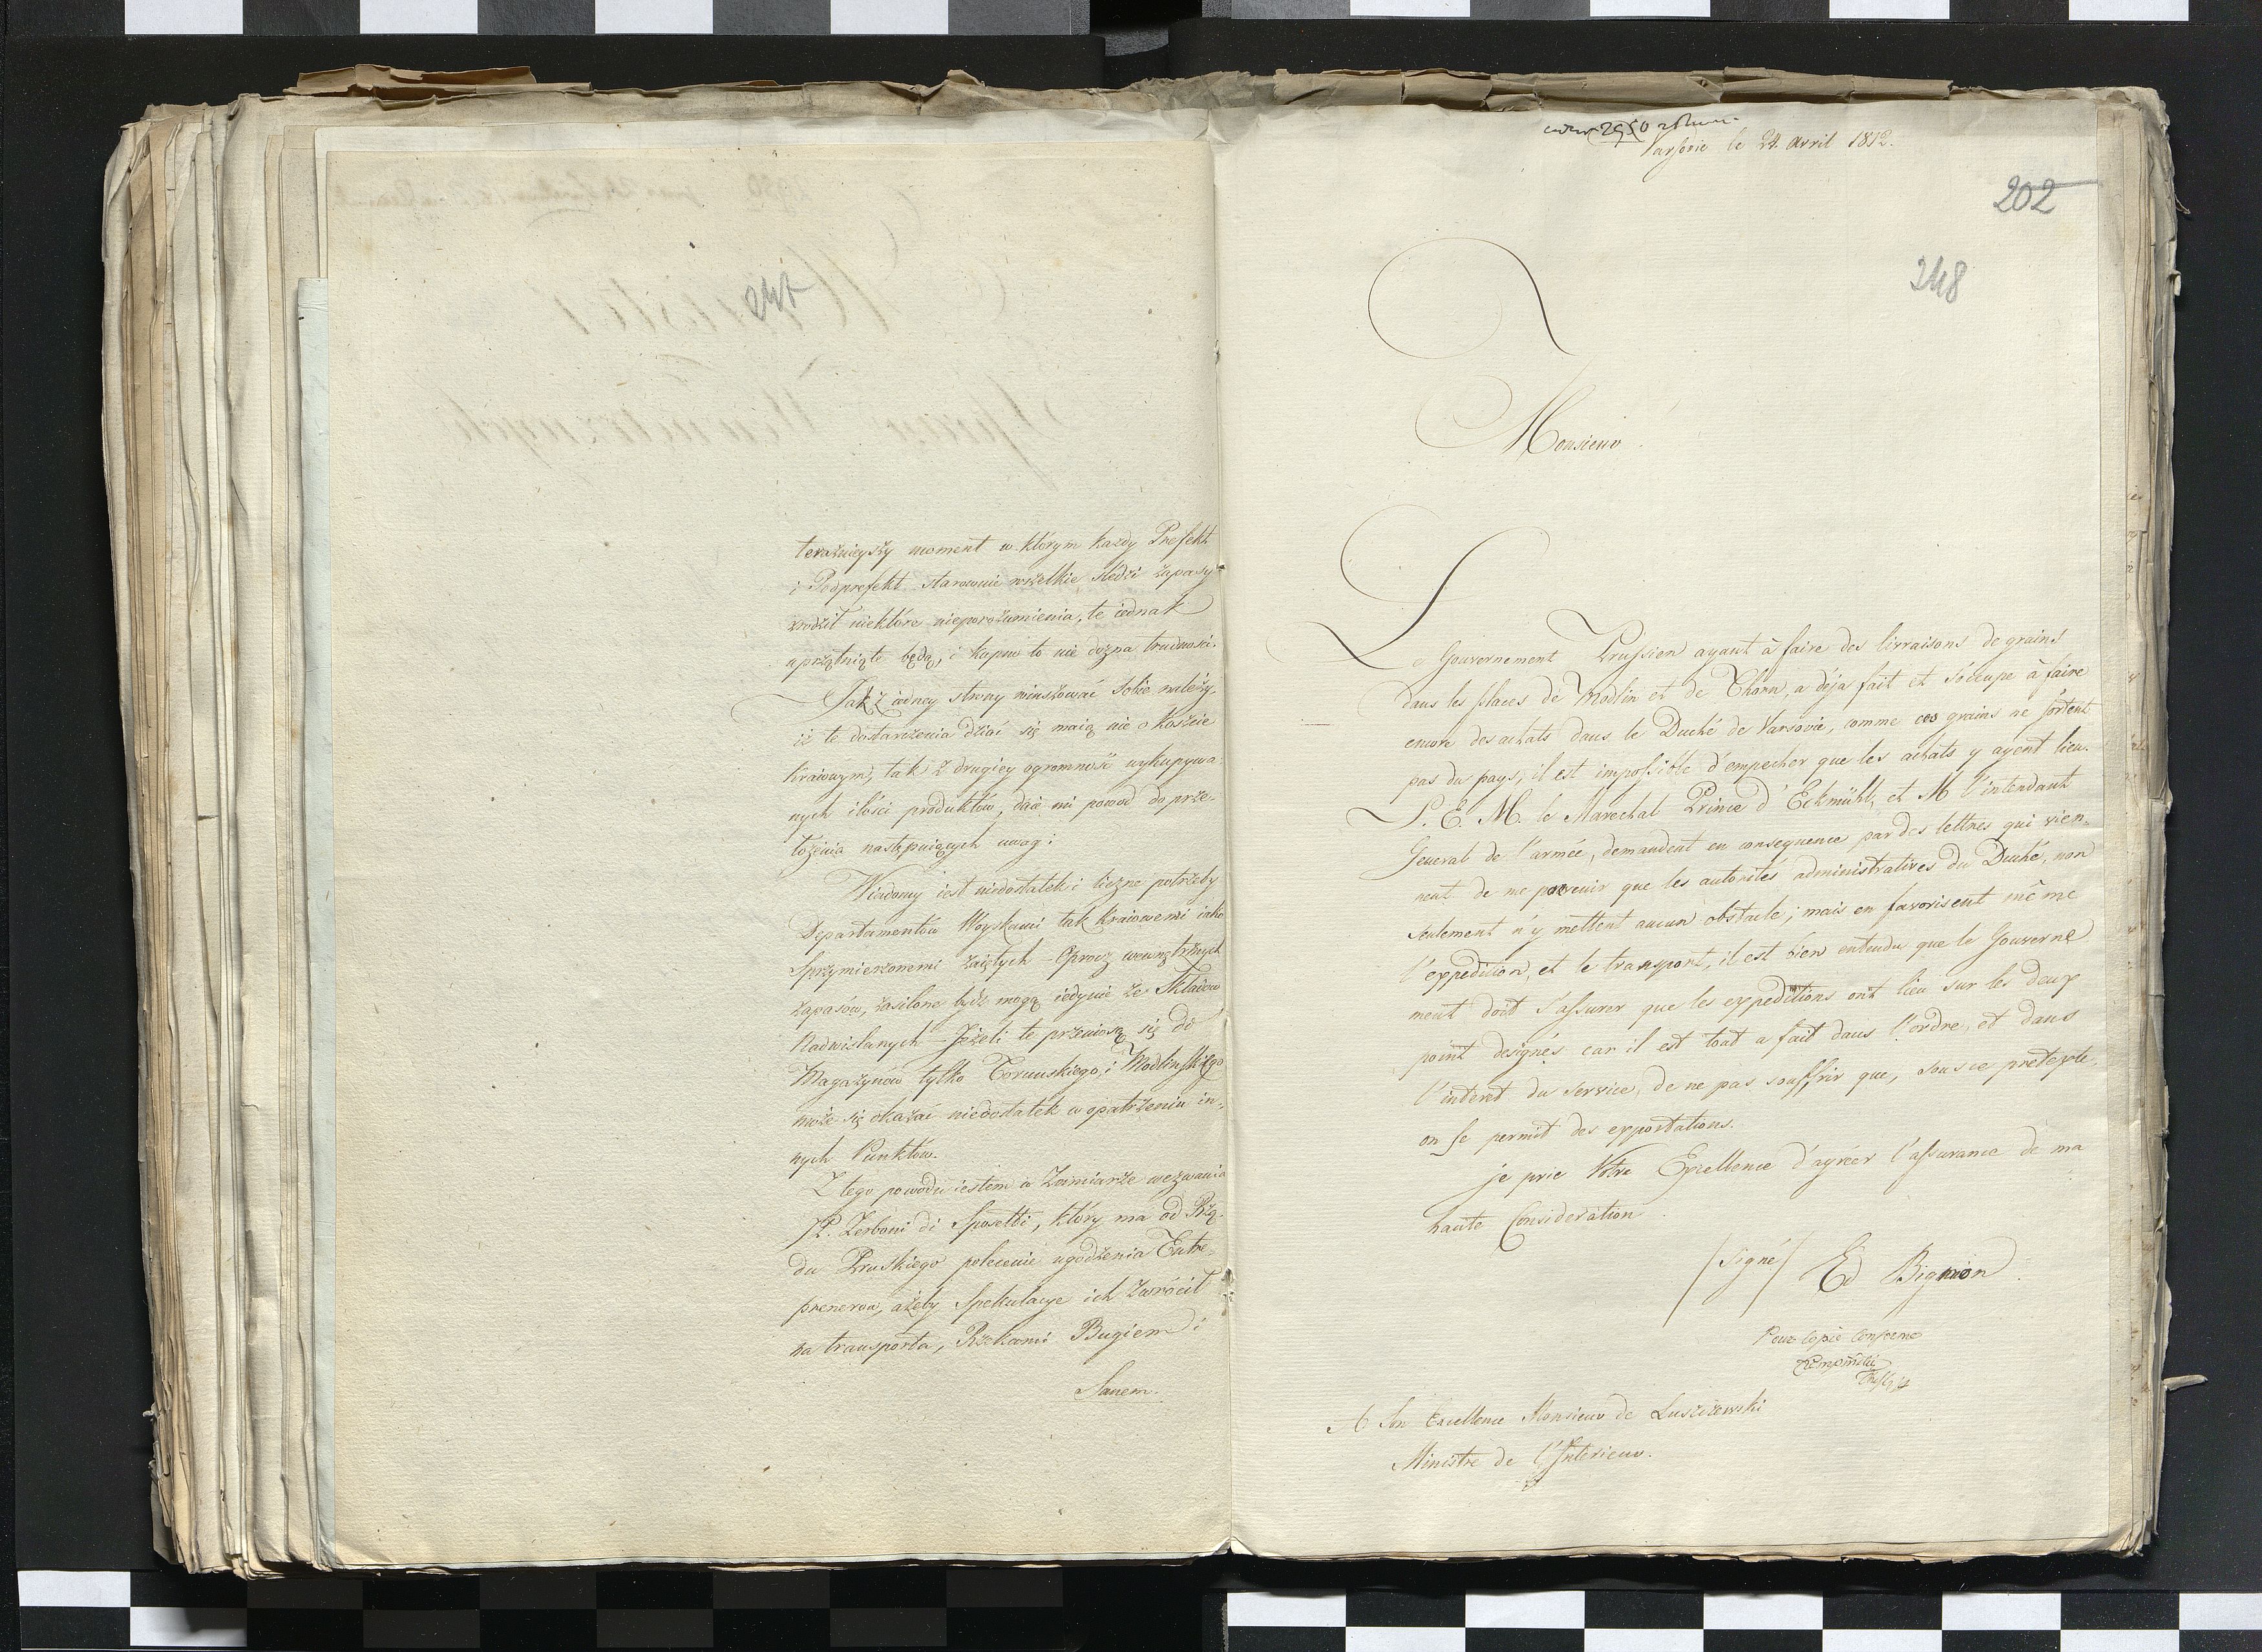 teraźnieyszy moment w którym każdy Prefekt
i Podprefekt starownie wszelkie śledzi zapasy
zrodził niektóre nieporozumienia, te iednak
uprzątnięte będą, i kupno to nie dozna trudności.
Jak z iedney strony winszować sobie należy
iż te dostarczenia dziać się maią nie okoszcie
kraiowym, tak z drugiey ogromność wykupywa-
nych ilości produktów, daie mi powod do prze-
łożenia następuiących uwag:
Wiadomy iest niedostatek i liczne potrzeby
Departamentów Woyskami tak Kraiowemi iako
Sprzymierzonemi zaiętych - Oprocz wewnętrznych
zapasów, zasilone bydź mogą iedynie ze Składów
Nadwislanych - Jeżeli te przeniosą się do
Magazynów tylko Torunskiego, i Modlinskiego
może się okazać niedostatek w opatrzeniu in-
nych Punktów.
Z tego powodu iestem w Zamiarze wezwania
JP. Zerboni di Sposetti, który ma od Rzą-
du Pruskiego polecenie ugodzenia Entre-
prenerow, ażeby Spekulacye ich zwrócił
na transporta, Rzekami Bugiem i
Sanem.
2950
Varsovie le 24 avril 1812.
202
248
Monsieur
Le Gouvernement Prussien ayant à faire des livraisons de grains
dans les places de Modlin et de Thorn, a déja fait et s'occupe à faire
encore des achats dans le Duché de Varsovie, comme ces grains ne sortent
pas du pays, il est impossible d'empecher que les achats y ayent lieu.
S. E. M. le Marechal Prince d'Eckmühl, et M l'intendant
General de l'armée, demandent en consequence par des lettres qui vien-
nent de me parvenir que les autorités administratives du Duché, non
seulement n'y mettent aucun obstacle; mais en favorisent même
l'expedition, et le transport, il est bien entendu que le Gouverne
ment doit s'assurer que les expeditions ont lieu sur les deux
point designés car il est tout a fait dans l'ordre, et dans
l'interet du service, de ne pas souffrir que, sous ce pretexte,
on se permit des exportations.
je prie Votre Excellence d'agréer l'assurance de ma
haute Consideration
/Signé/ Ed Bignon
Pour Copie Conforme
A Son Excellence Monsieur de Luszczewski
Ministre de l'Interieur.